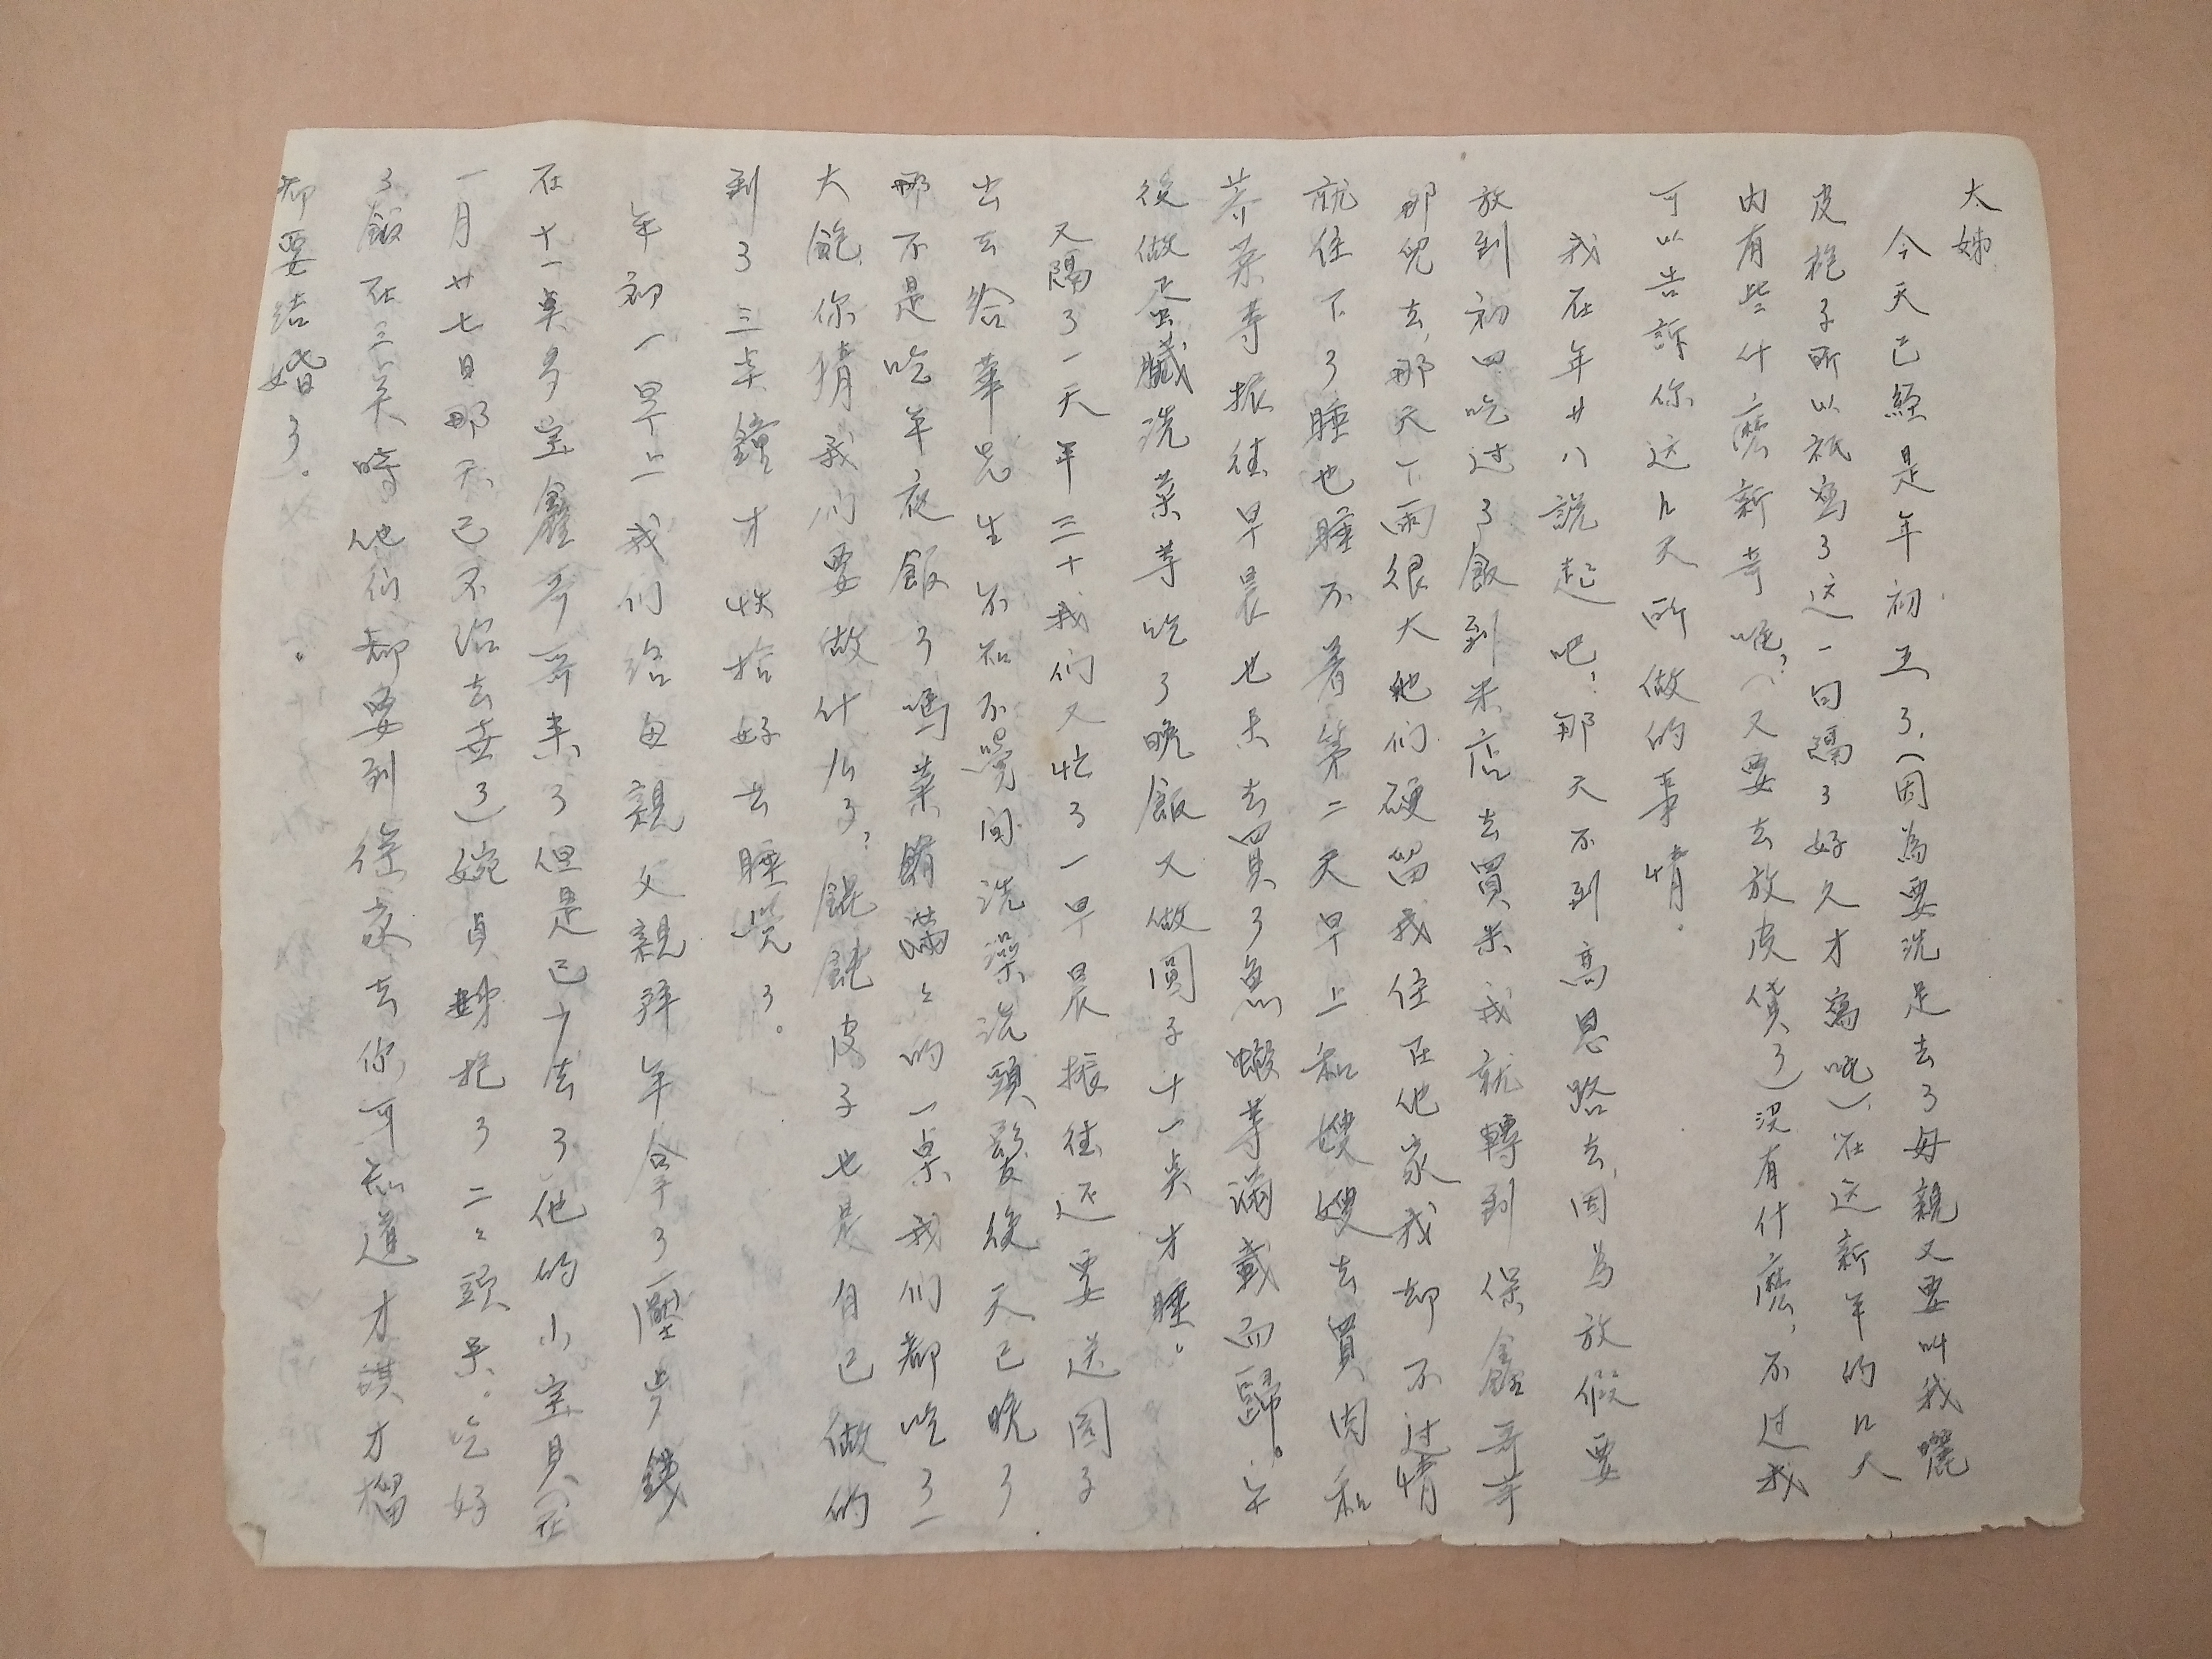 大姊
今天已經是年初五了.(因為要洗足去了母親又要叫我曬
皮袍子所以祇寫了这一句隔了好久才寫呢).在这新年的几天
內有些什麼新奇呢?(又要去放皮貨了)沒有什麼,不过我
可以告訴你这几天所做的事情.
我在年廿八說起吧!那天不到高恩路去,因為放假要
放到初四吃过了飯到米店去買米我就轉到保鑫哥哥
那兒去,那天下雨很大他們硬留我住在他家我却不过情
就住下了睡也睡不着第二天早上和嫂嫂去買肉和
芥菜等振徍早晨也去買了魚等滿載而歸。午
後做蛋餓洗菜等吃了晚飯又做圓子十一点才睡。
又隔了一天年三十我们又忙了一早晨振徍还要送圓子
出去給華兄生不知不覺间洗澡洗頭髮後天已晚了
那不是吃年夜飯了嗎菜餚滿々的一桌我们都吃了一
大飽,你猜我们要做什么了?餛飩皮子也是自己做的
到了三点鐘才收拾好去睡覺了。
年初一早上我们给母親父親拜年拿了壓歲錢
在十一点多宝鑫哥哥来了但是已少去了他的小宝貝(在
一月廿七日那天已不治去世了)婉貞姊抱了二々頭来。吃好
了飯在三点時他们都要到徍家去你可知道才謨才榴
都要结婚了。